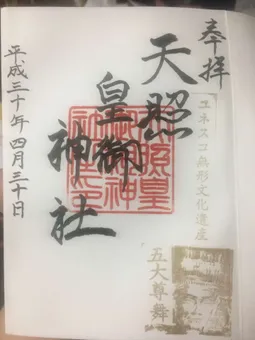 奉拝
ユネスコ無形文化遺産
五大尊舞
天照
皇御
神社
平成三十年四月三十日